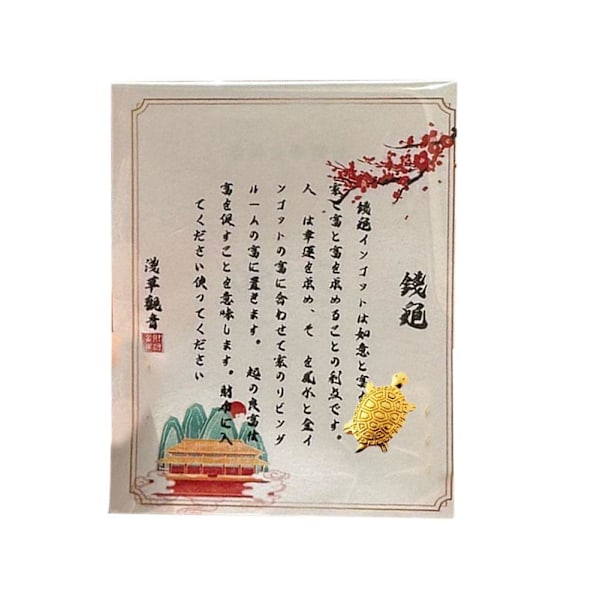 錢龜
錢龜インゴットは如意と富
家で富と富を求めることの利点です。
人 は幸運を求め、そ を風水と金イ
ンゴットの富に合わせて家のリビング
ルームの富に置きます。 極の良富は
富を促すことを意味します。財布に入
てください使ってください
淺草觀音